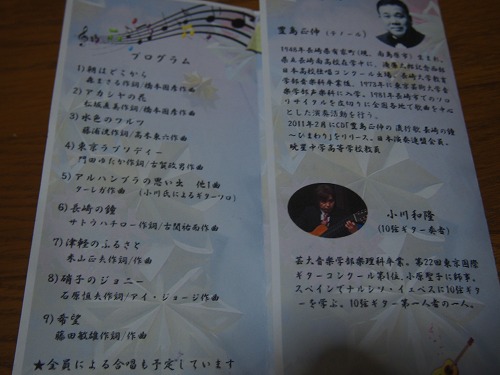 プログラム
1)朝はどこから
森まさる作詞/橋本國彦作曲
2)アカシヤの花
松坂直美作詞/橋本国彦作曲
3)水色のワルツ
藤浦洸作詞/高木東六作曲
4)東京ラプソディー
門田ゆたか作詞/古賀政男作曲
5)アルハンブラの思い出 他1曲
ターレガ作曲 (小川氏によるギターソロ)
6)長崎の鐘
サトウハチロー作詞/古関裕而作曲
7)津軽のふるさと
米山正夫作詞/作曲
8)硝子のジョニー
石原恒夫作詞/アイ・ジョージ作曲
9)希望
藤田敏雄作詞/作曲
★全員による合唱も予定しています
豊島正伸(テノール)
1948年長崎県有家町(現、南島原市)生まれ。
県立長崎南高校在学中に、滝廉太郎記念西部
日本高校独唱コンクール出場。長崎大学教育学部
音楽科卒業後、1973年に東京芸術大学音
楽学部声楽科に入学。1981年長崎市でのソロ
リサイタルを皮切りに全国各地で歌曲を中心
とした演奏活動を行う。
2011年2月にCD「豊島正伸の流行歌 長崎の鐘
～ひまわり」をリリース。日本演奏連盟会員。
暁星中学高等学校教員
小川和隆
(10弦ギター奏者)
芸大音楽学部楽理科卒業。第22回東京国際
ギターコンクール第1位、小原聖子に師事。
スペインでナルシソ・イェペスに10弦ギタ
ーを学ぶ。10弦ギター第一人者の一人。